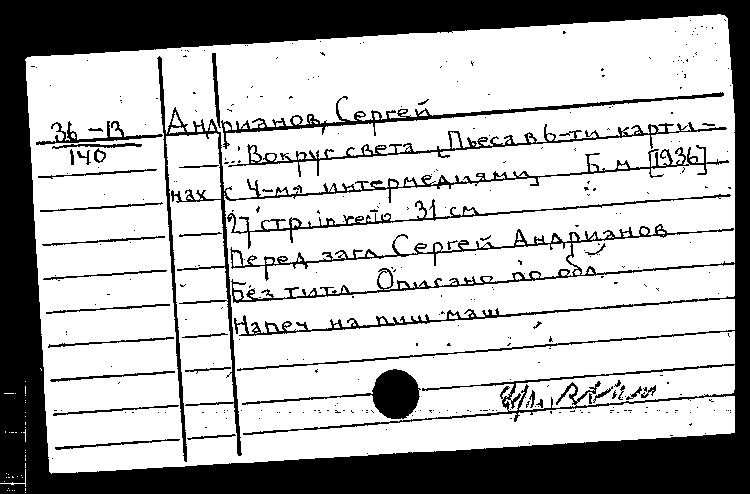 36-13
140
Андрианов, Сергей
Вокруг света [Пьеса в 6-ти карти-
нах с 4-мя интермедиями] Б. м [1936]
27 стр. in recto 31 см
Перед загл Сергей Андрианов
Без титл Описано по обл.
Напеч на пиш маш